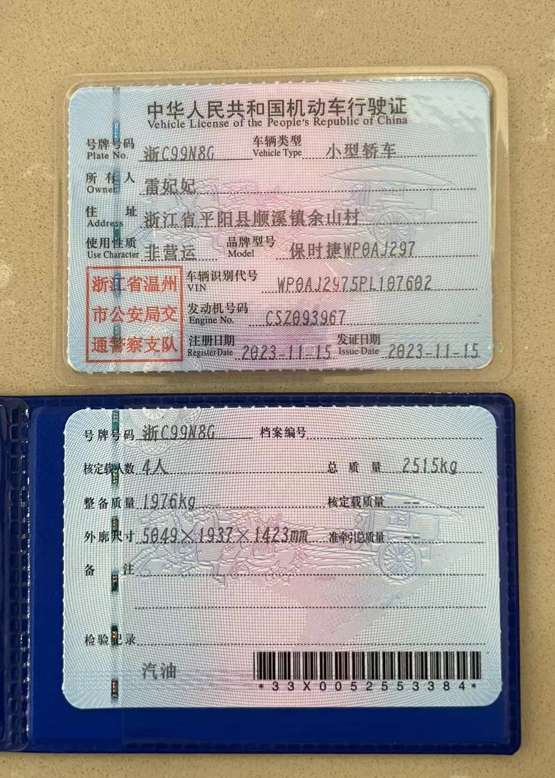 中华人民共和国机动车行驶证
Vehicle License of the People's Republic of China
号牌号码 Plate No. 浙C99N8G 车辆类型 Vehicle Type 小型轿车
所有人 Owner 雷妃妃
住址 Address 浙江省平阳县顺溪镇余山村
使用性质 Use Character 非营运 品牌型号 Model 保时捷WP0AJ297
浙江省温州市公安局交通警察支队
车辆识别代号 VIN WP0AJ2975PL107602
发动机号码 Engine No. CSZ093967
注册日期 Register Date 2023-11-15 发证日期 Issue Date 2023-11-15
号牌号码 浙C99N8G 档案编号
核定载人数 4人 总质量 2515kg
整备质量 1976kg 核定载质量 --
外廓尺寸 5049×1937×1423mm 准牵引总质量 --
备注
检验记录
汽油
*33X0052553384*